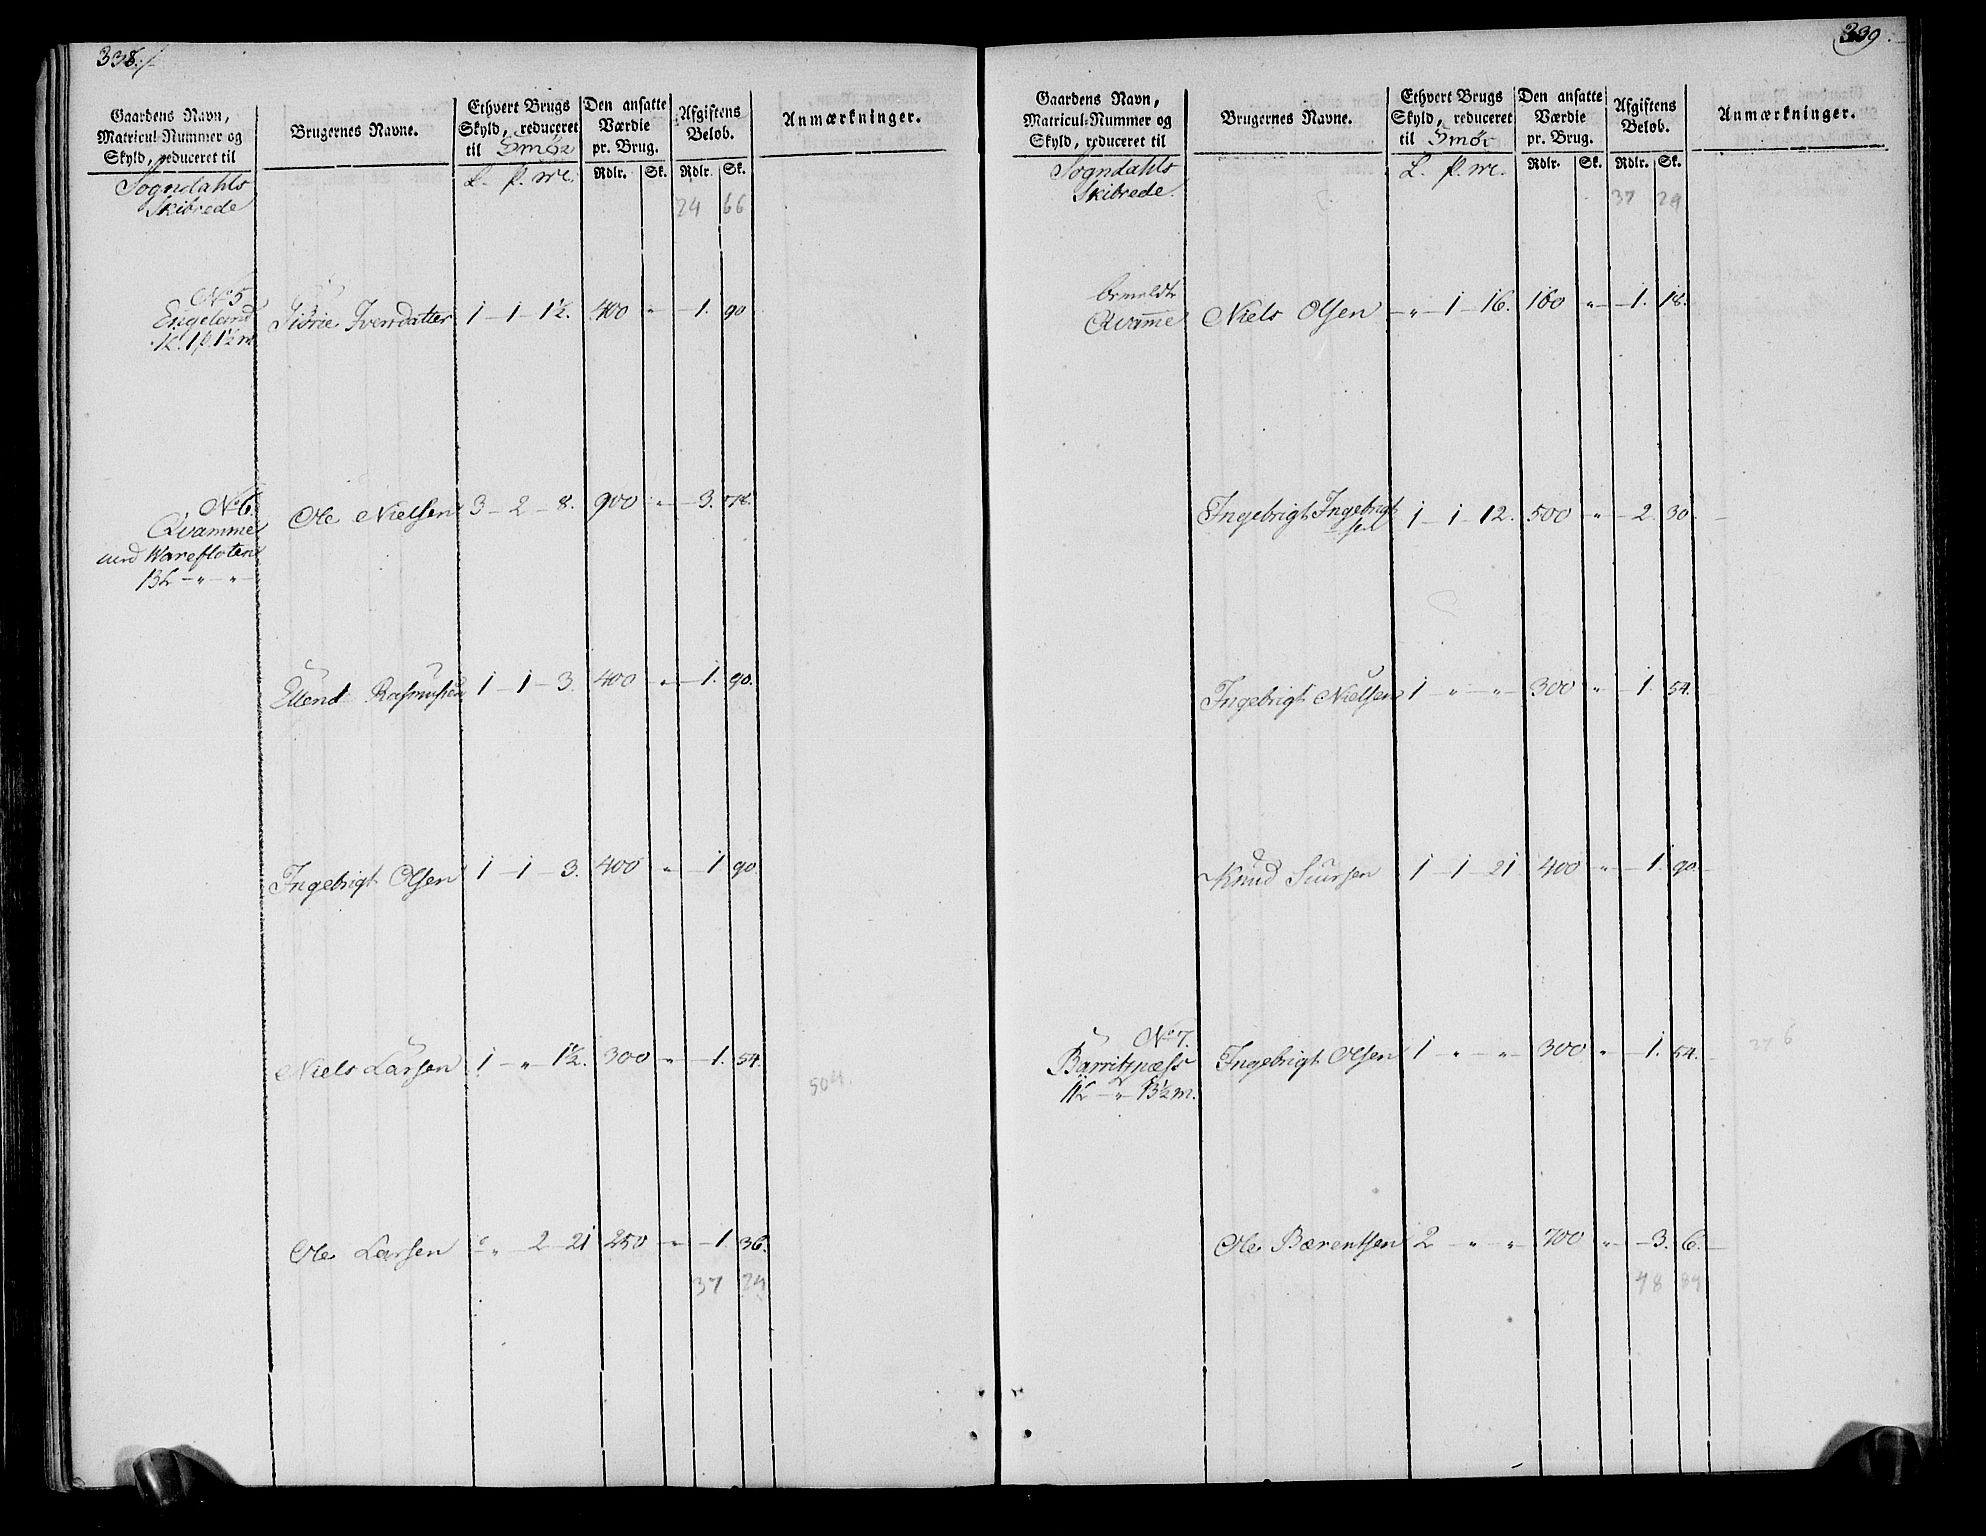 338.
Gaardens Navn,
Matricul-Nummer og
Skyld, reduceret til
Brugernes Navne.
Ethvert Brugs
Skyld, reduceret
til Smør
Den ansatte
Værdie
pr. Brug.
Afgiftens
Beløb.
Anmærkninger.
Rdlr. Sk. Rdlr. Sk.
L. p. m.
Sogndahls
Skibrede
24 66
No 5
Engeland
1L. 1p. 1½m
Iverdatter 1 - 1 - 1½. 400 " - 1. 90
No 6.
Qvamme
13L - " - " -
Ole Nielsen 3 - 2 - 8. 900 " - 3. 78.
Ellend Rasmusen 1 - 1 - 3. 400 " - 1. 90.
Ingebrigt Olsen 1 - 1 - 3. 400 " - 1 90.
Niels Larsen 1 - " - 1½. 300 " - 1. 54.
504.
Ole Larsen " - 2 - 21 250 " - 1. 36.
37 24
339.
Gaardens Navn,
Matricul-Nummer og
Skyld, reduceret til
Brugernes Navne.
Ethvert Brugs
Skyld, reduceret
til Smør
Den ansatte
Værdie
pr. Brug.
Afgiftens
Beløb.
Anmærkninger.
Rdlr. Sk. Rdlr. Sk.
L. p. m.
Sogndahls
Skibrede.
37 24
Ommeldte
Qvamme
Niels Olsen - " - 1 - 16. 160 " - 1. 18.
Ingebrigt Ingebrigt
sen 1 - 1 - 12. 500 - " - 2. 30. -
Ingebrigt Nielsen 1 - " - " - 300 " - 1. 54.
Knud 1 - 1 - 21 400 " - 1. 90. -
No 7.
Barritznæss
11L - " 13½m.
Ingebrigt Olsen 1 - " - " - 300 " - 1. 54. -
27 6
Ole Bærentsen 2 - " - " - 700 " - 3. 6. -
48 84